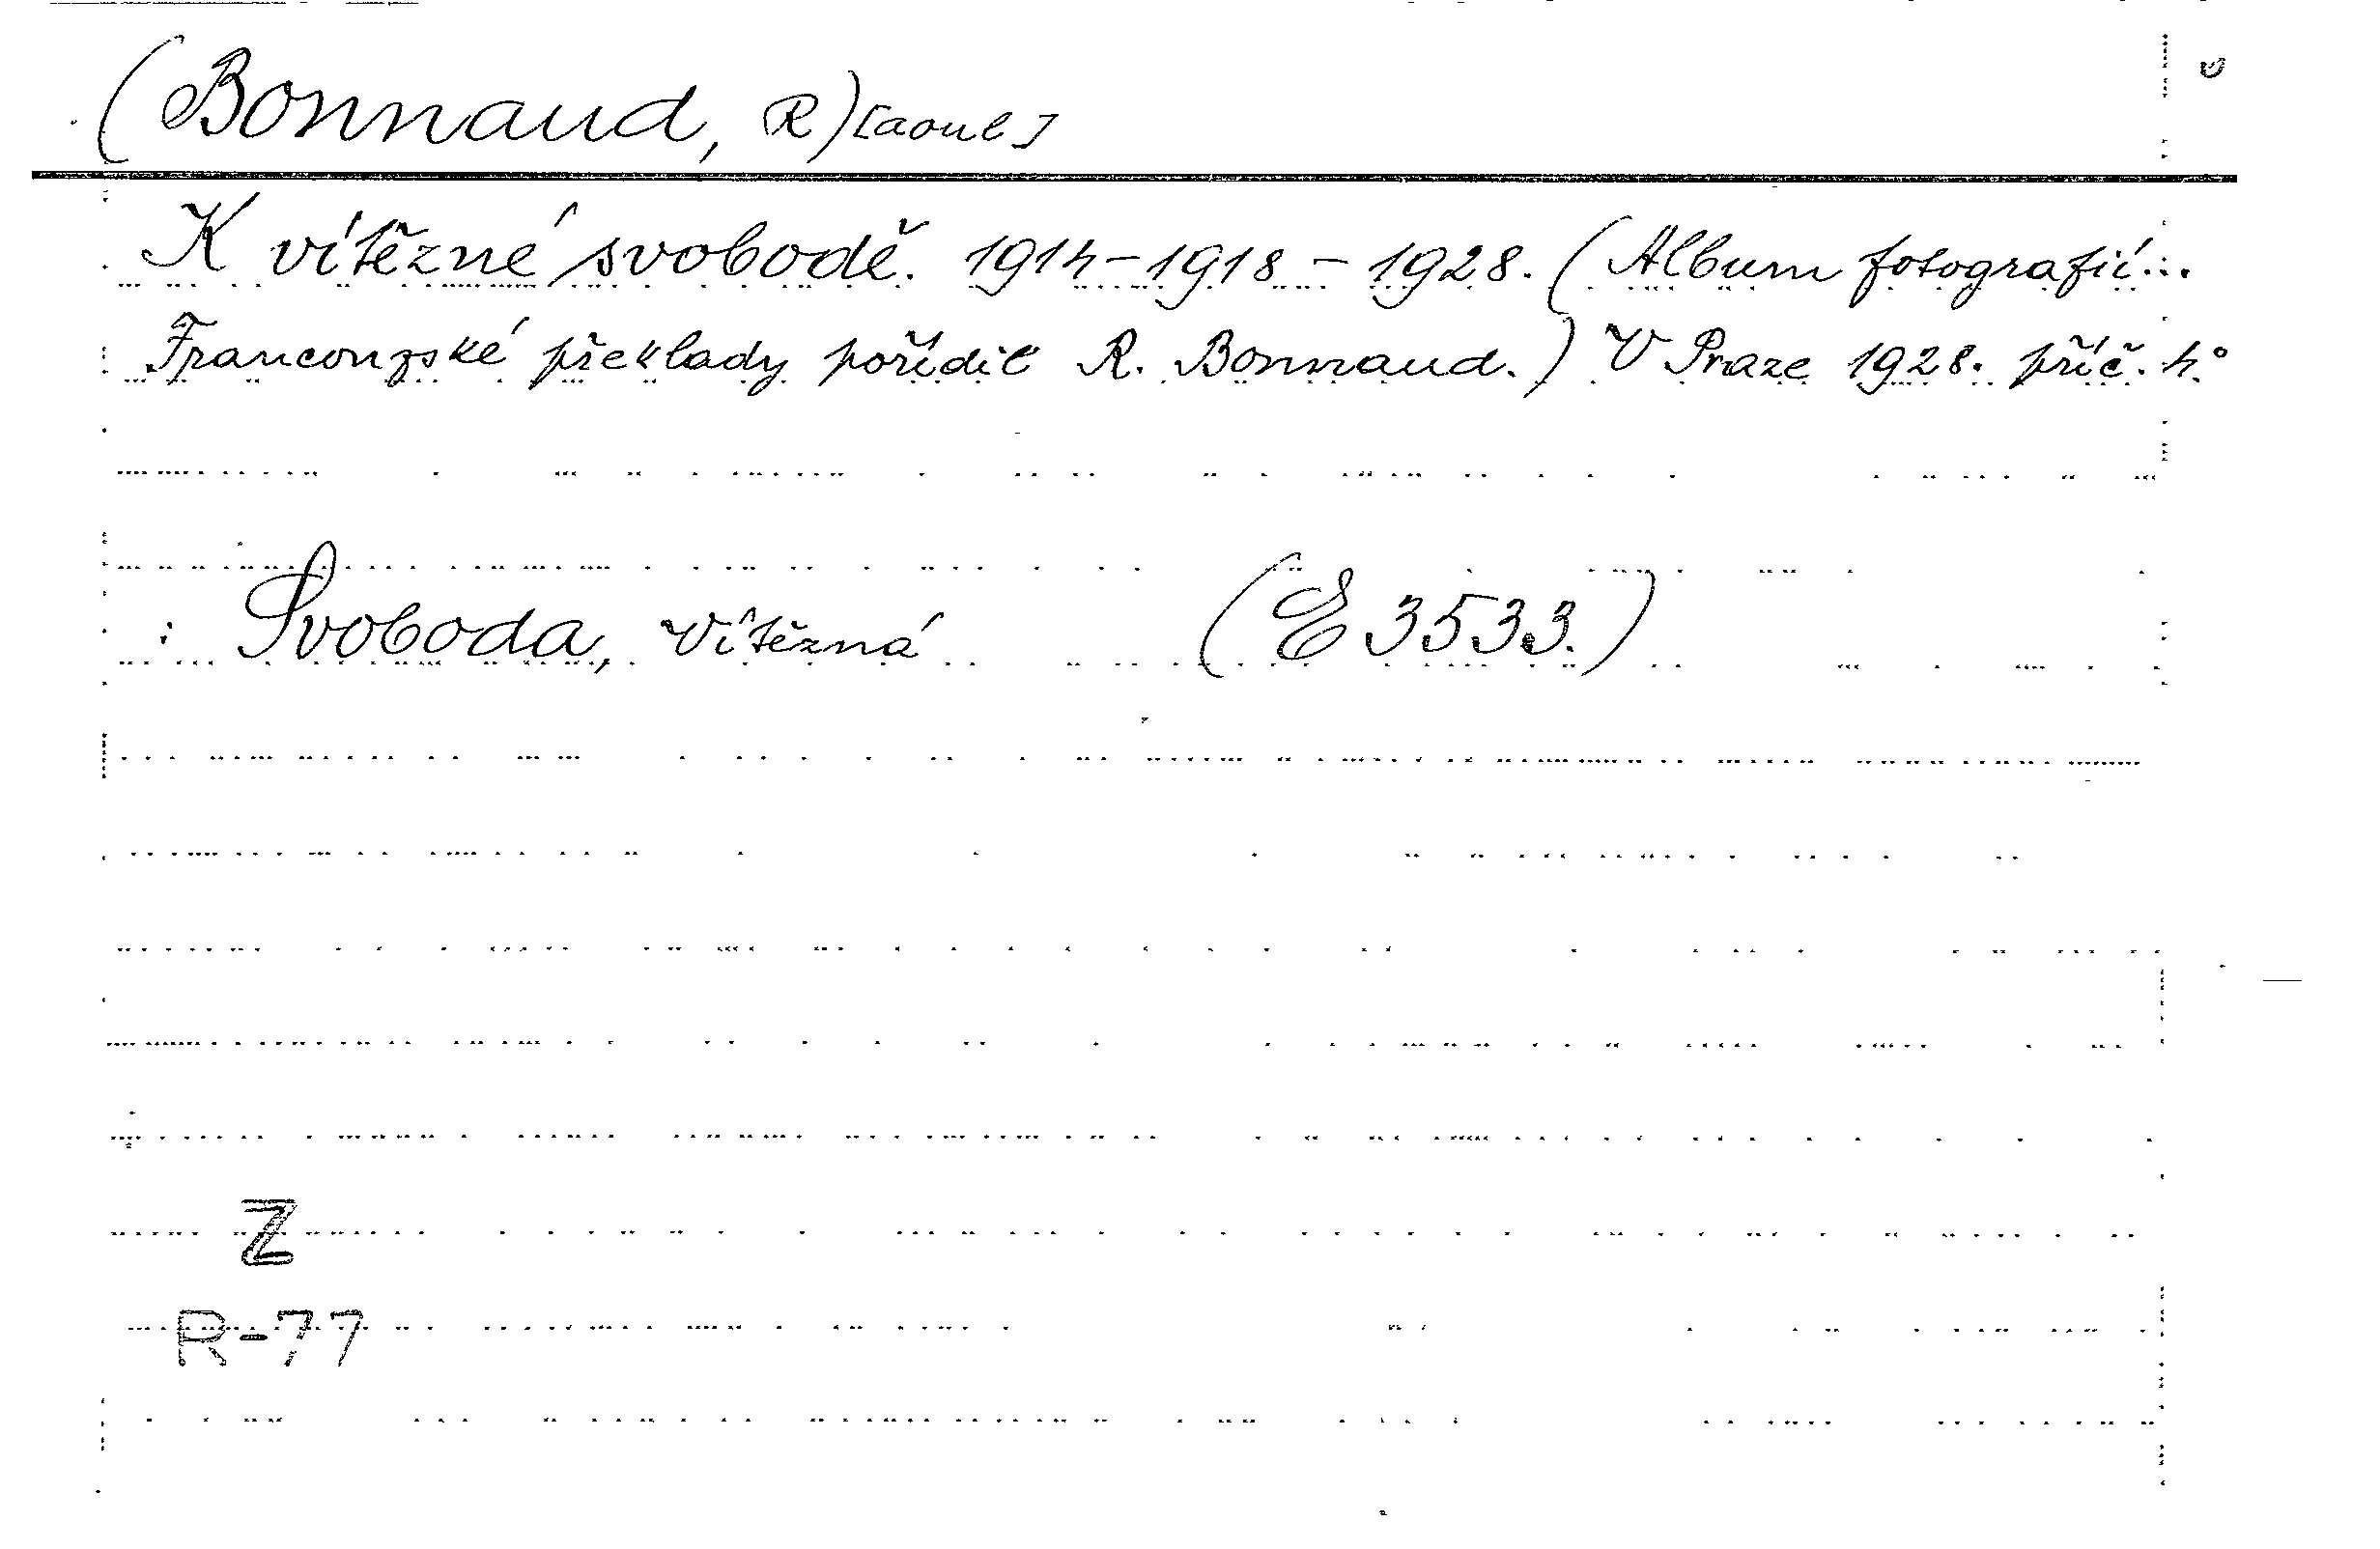 (Bonnaud, R)[aoul]
K vítězné svobodě. 1914-1918 - 1928. (Album fotografií...
Francouzské překlady pořídil R. Bonnaud.) V Praze 1928. příč. 4°
: Svoboda, Vítězná (E 3533.)
Z
R-77